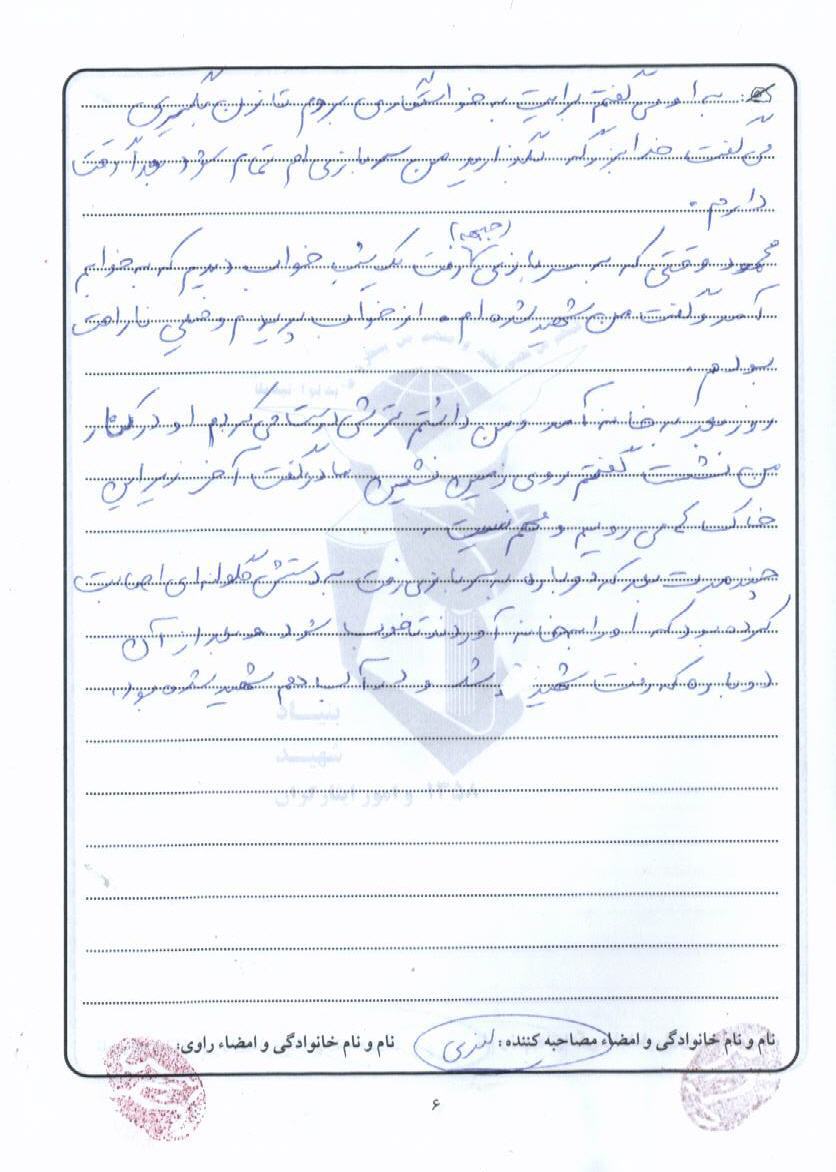 به او می گفتم برایت به خواستگاری بروم تا زن بگیری
می گفت خدا بزرگه بگذارید من سربازی ام تمام شود بعداً وقت
دارم.
محمود وقتی که به سربازی (جبهه) رفت یک شب خواب دیدم که به خوابم
آمد و گفت من شهید شده ام. از خواب پریدم و خیلی ناراحت
بودم.
روز بعد به خانه آمد و من داشتم ترشی درست می کردم او در کنار
من نشست گفتم روی زمین نشین مادر گفت آخر زیر این
خاک ها می رویم و مهم نیست.
چند مدت بعد که دوباره به سربازی رفت به دستش گلوله ای اصابت
کرده بود که او را به خانه آوردند تا خوب شود و بعد از آن
دوباره که رفت شهید شد و در آب هم شهید شده بود.
بنیاد
شهید
و امور ایثارگران ۱۳۵۸
نام و نام خانوادگی و امضاء مصاحبه کننده:
نام و نام خانوادگی و امضاء راوی:
۶